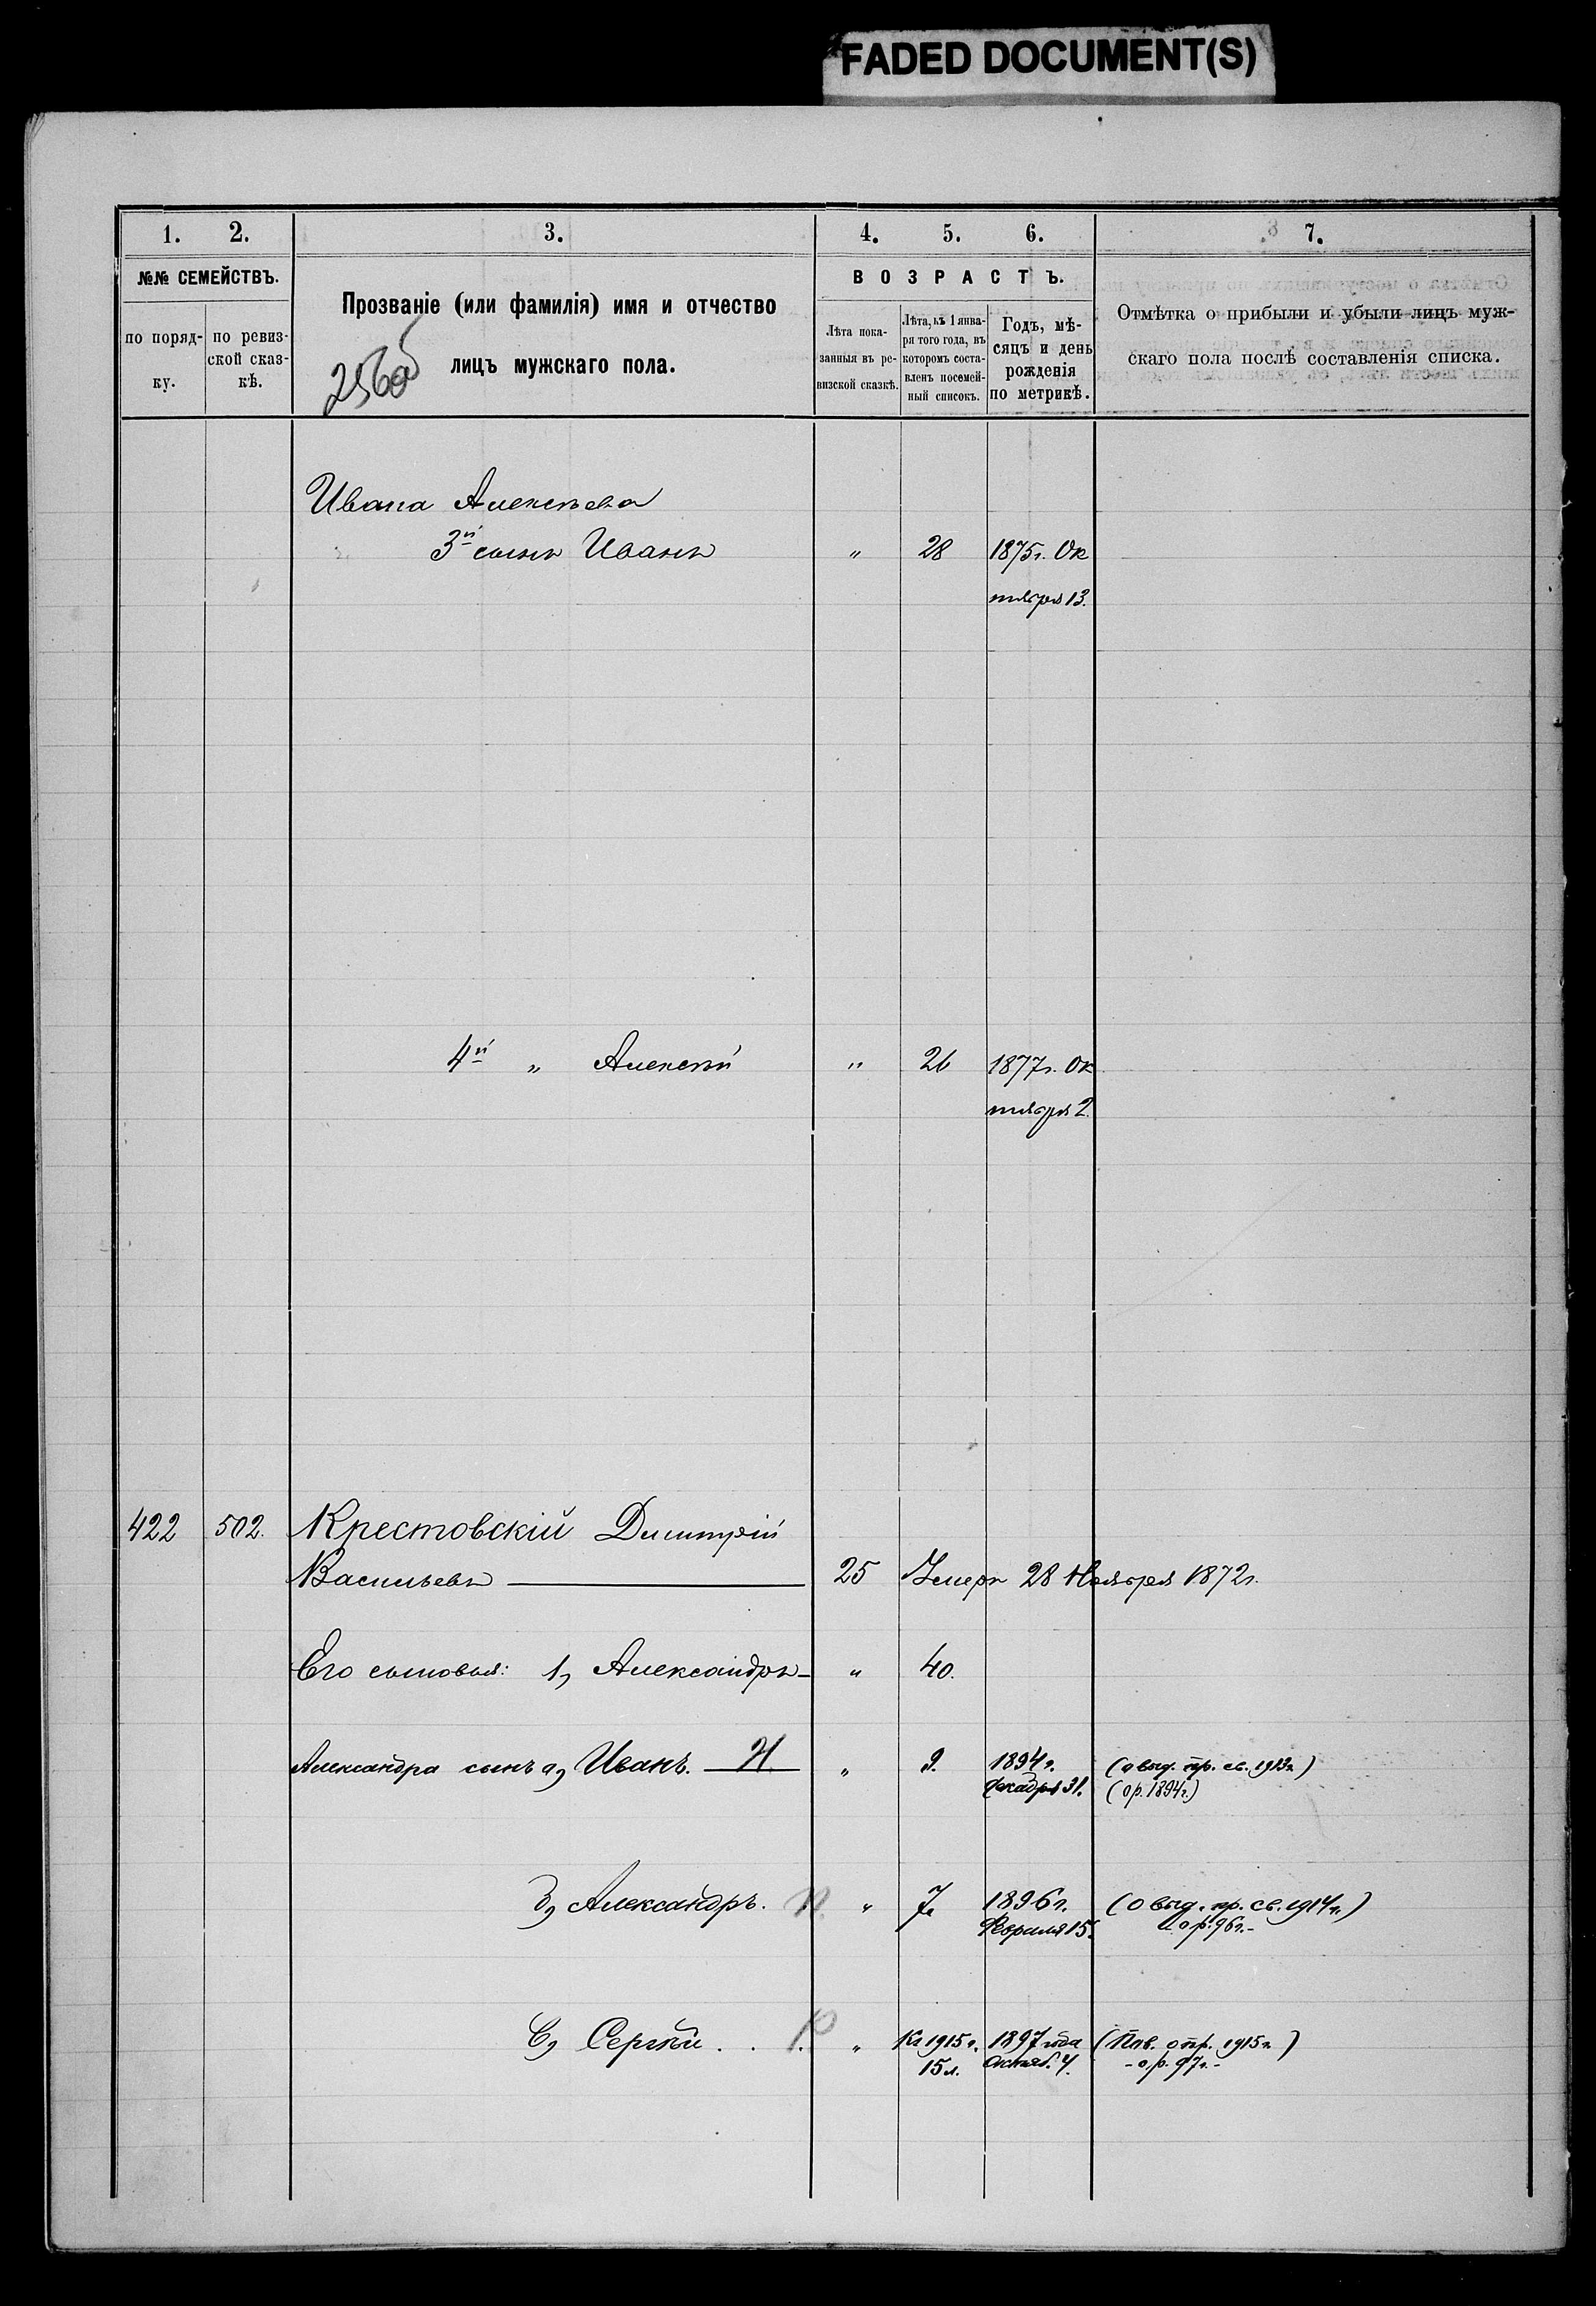 FADED DOCUMENT(S)
1. 2. 3. 4. 5. 6. 7.
№№ СЕМЕЙСТВЪ.
по поряд-
ку.
по ревиз-
ской сказ-
кѣ.
Прозваніе (или фамилія) имя и отчество
лицъ мужскаго пола.
256об
ВОЗРАСТЪ.
Лѣта пока-
занныя въ ре-
визской сказкѣ.
Лѣта, къ 1 янва-
ря того года, въ
которомъ соста-
вленъ посемей-
ный списокъ.
Годъ, мѣ-
сяцъ и день
рожденія
по метрикѣ.
Отмѣтка о прибыли и убыли лицъ муж-
скаго пола послѣ составленія списка.
Ивана Алексѣева
3й сынъ Иванъ " 28 1875г. Ок
тября 13.
4й " Алексѣй " 26 1877г. Ок
тября 2.
422 502. Крестовскій Димитрій
Васильевъ 25 Умеръ 28 Ноября 1872г.
Его сыновья: 1, Александръ " 40.
Александра сынъ а, Иванъ. Н " 9. 1894г. (о выд. пр. св. 1913г.)
Декабря 31. (о р. 1894г.)
б, Александръ. " 7. 1896г. (о выд. пр. св. 1914г.)
Февраля 15. о р. 96г.-
в, Сергѣй . . " Къ 1915г. 1897 года (Пов. о пр. 1915г.)
15 л. Октяб. 4. - о р. 97г.-